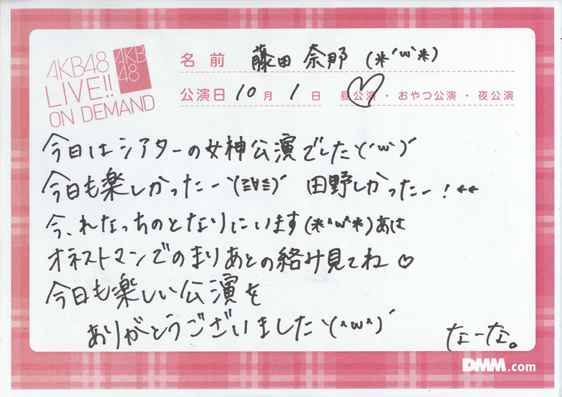 AKB48
LIVE!!
ON DEMAND
AKB
48
名前 藤田 奈那 (*´ω`*)
公演日 10月 1日 昼公演・おやつ公演・夜公演
今日はシアターの女神公演でしたヽ(´ω`)ノ
今日も楽しかったーヽ(≧∀≦)ノ 田野しかったー!++
今、れなっちのとなりにいます(*^ω^*)あは
オネストマンでのまりあとの絡み見てね♡
今日も楽しい公演を
ありがとうございましたヽ(^ω^)ノ
なーな。
DMM.com